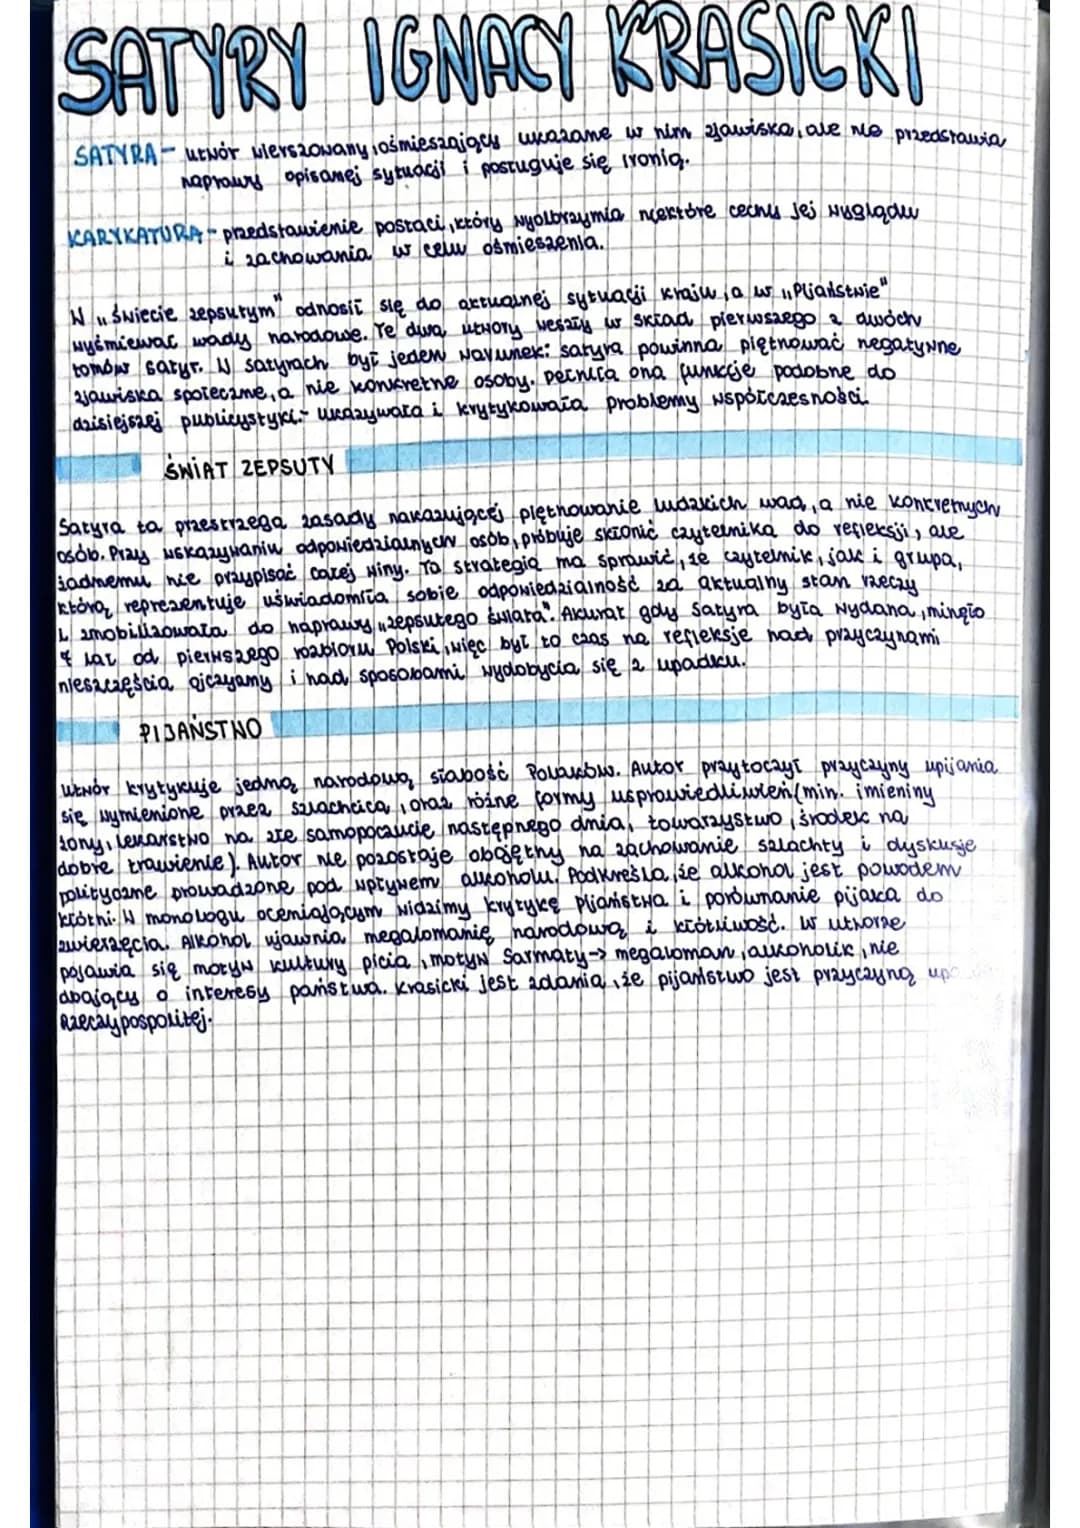 SATYRY IGNACY KRASICKI
SATYRA - utwór wierszowany, ośmieszający ukazane w nim zjawiska, ale nie przedstawia
naprawy opisanej sytuacji i posługuje się ironią.
KARYKATURA - przedstawienie postaci, który wyolbrzymia niektóre cechy jej wyglądu
i zachowania w celu ośmieszenia.
W „Świecie zepsutym" odnosił się do aktualnej sytuacji kraju, a w „Pijaństwie"
wyśmiewać wady narodowe. Te dwa utwory weszły w skład pierwszego z dwóch
tomów satyr. W satyrach był jeden warunek: satyra powinna piętnować negatywne
zjawiska społeczne, a nie konkretne osoby. Pełniła ona funkcje podobne do
dzisiejszej publicystyki - ukazywała i krytykowała problemy współczesności.
ŚWIAT ZEPSUTY
Satyra ta przestrzega zasady nakazującej piętnowanie ludzkich wad, a nie konkretnych
osób. Przy wskazywaniu odpowiedzialnych osób, próbuje skłonić czytelnika do refleksji, ale
żadnemu nie przypisać całej winy. Ta strategia ma sprawić, że czytelnik, jak i grupa,
którą reprezentuje uświadomiła sobie odpowiedzialność za aktualny stan rzeczy
i zmobilizowała do naprawy „zepsutego świata". Akurat gdy satyra była wydana, minęło
7 lat od pierwszego rozbioru Polski, więc był to czas na refleksje nad przyczynami
nieszczęścia ojczyzny i nad sposobami wydobycia się z upadku.
PIJAŃSTWO
Utwór krytykuje jedną narodową słabość Polaków. Autor przytoczył przyczyny upijania
się wymienione przez szlachcica, oraz różne formy usprawiedliwień (min. imieniny
żony, lekarstwo na złe samopoczucie następnego dnia, towarzystwo, środek na
dobre trawienie). Autor nie pozostaje obojętny na zachowanie szlachty i dyskusje
polityczne prowadzone pod wpływem alkoholu. Podkreśla, że alkohol jest powodem
kłótni. W monologu oceniającym widzimy krytykę pijaństwa i porównanie pijaka do
zwierzęcia. Alkohol ujawnia megalomanię narodową i kłótliwość. W utworze
pojawia się motyw kultury picia, motyw Sarmaty -> megaloman, alkoholik, nie
dbający o interesy państwa. Krasicki jest zdania, że pijaństwo jest przyczyną
Rzeczypospolitej.